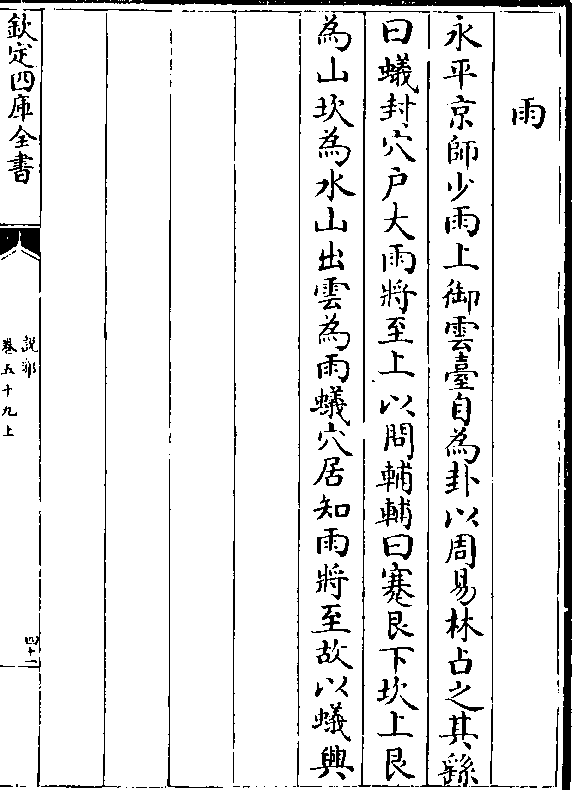 雨
永平京師少雨上御雲臺自為卦以周易林占之其繇
曰蟻封穴户大雨將至上以問輔輔曰蹇艮下坎上艮
為山坎為水山出雲為雨蟻穴居知雨將至故以蟻興
欽定四庫全書
説郛
卷五十九上
四十二